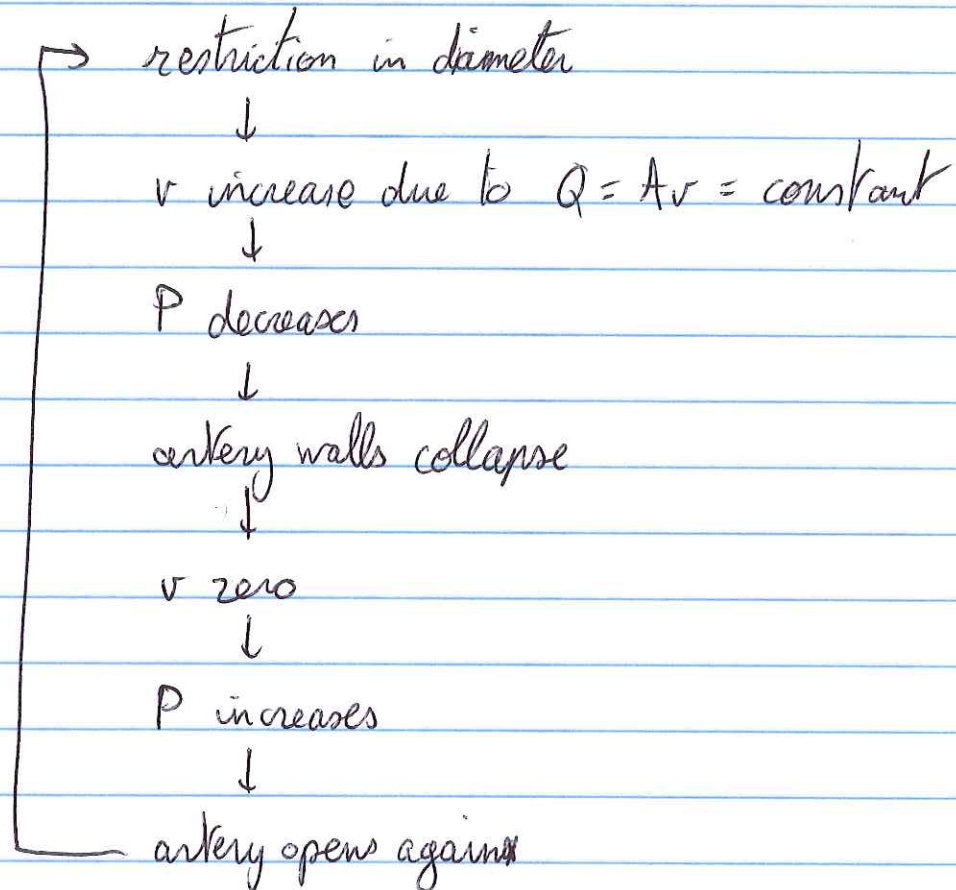 → restriction in diameter
↓
v increase due to Q = Av = constant
↓
P decreases
↓
artery walls collapse
↓
v zero
↓
P increases
↓
artery opens again